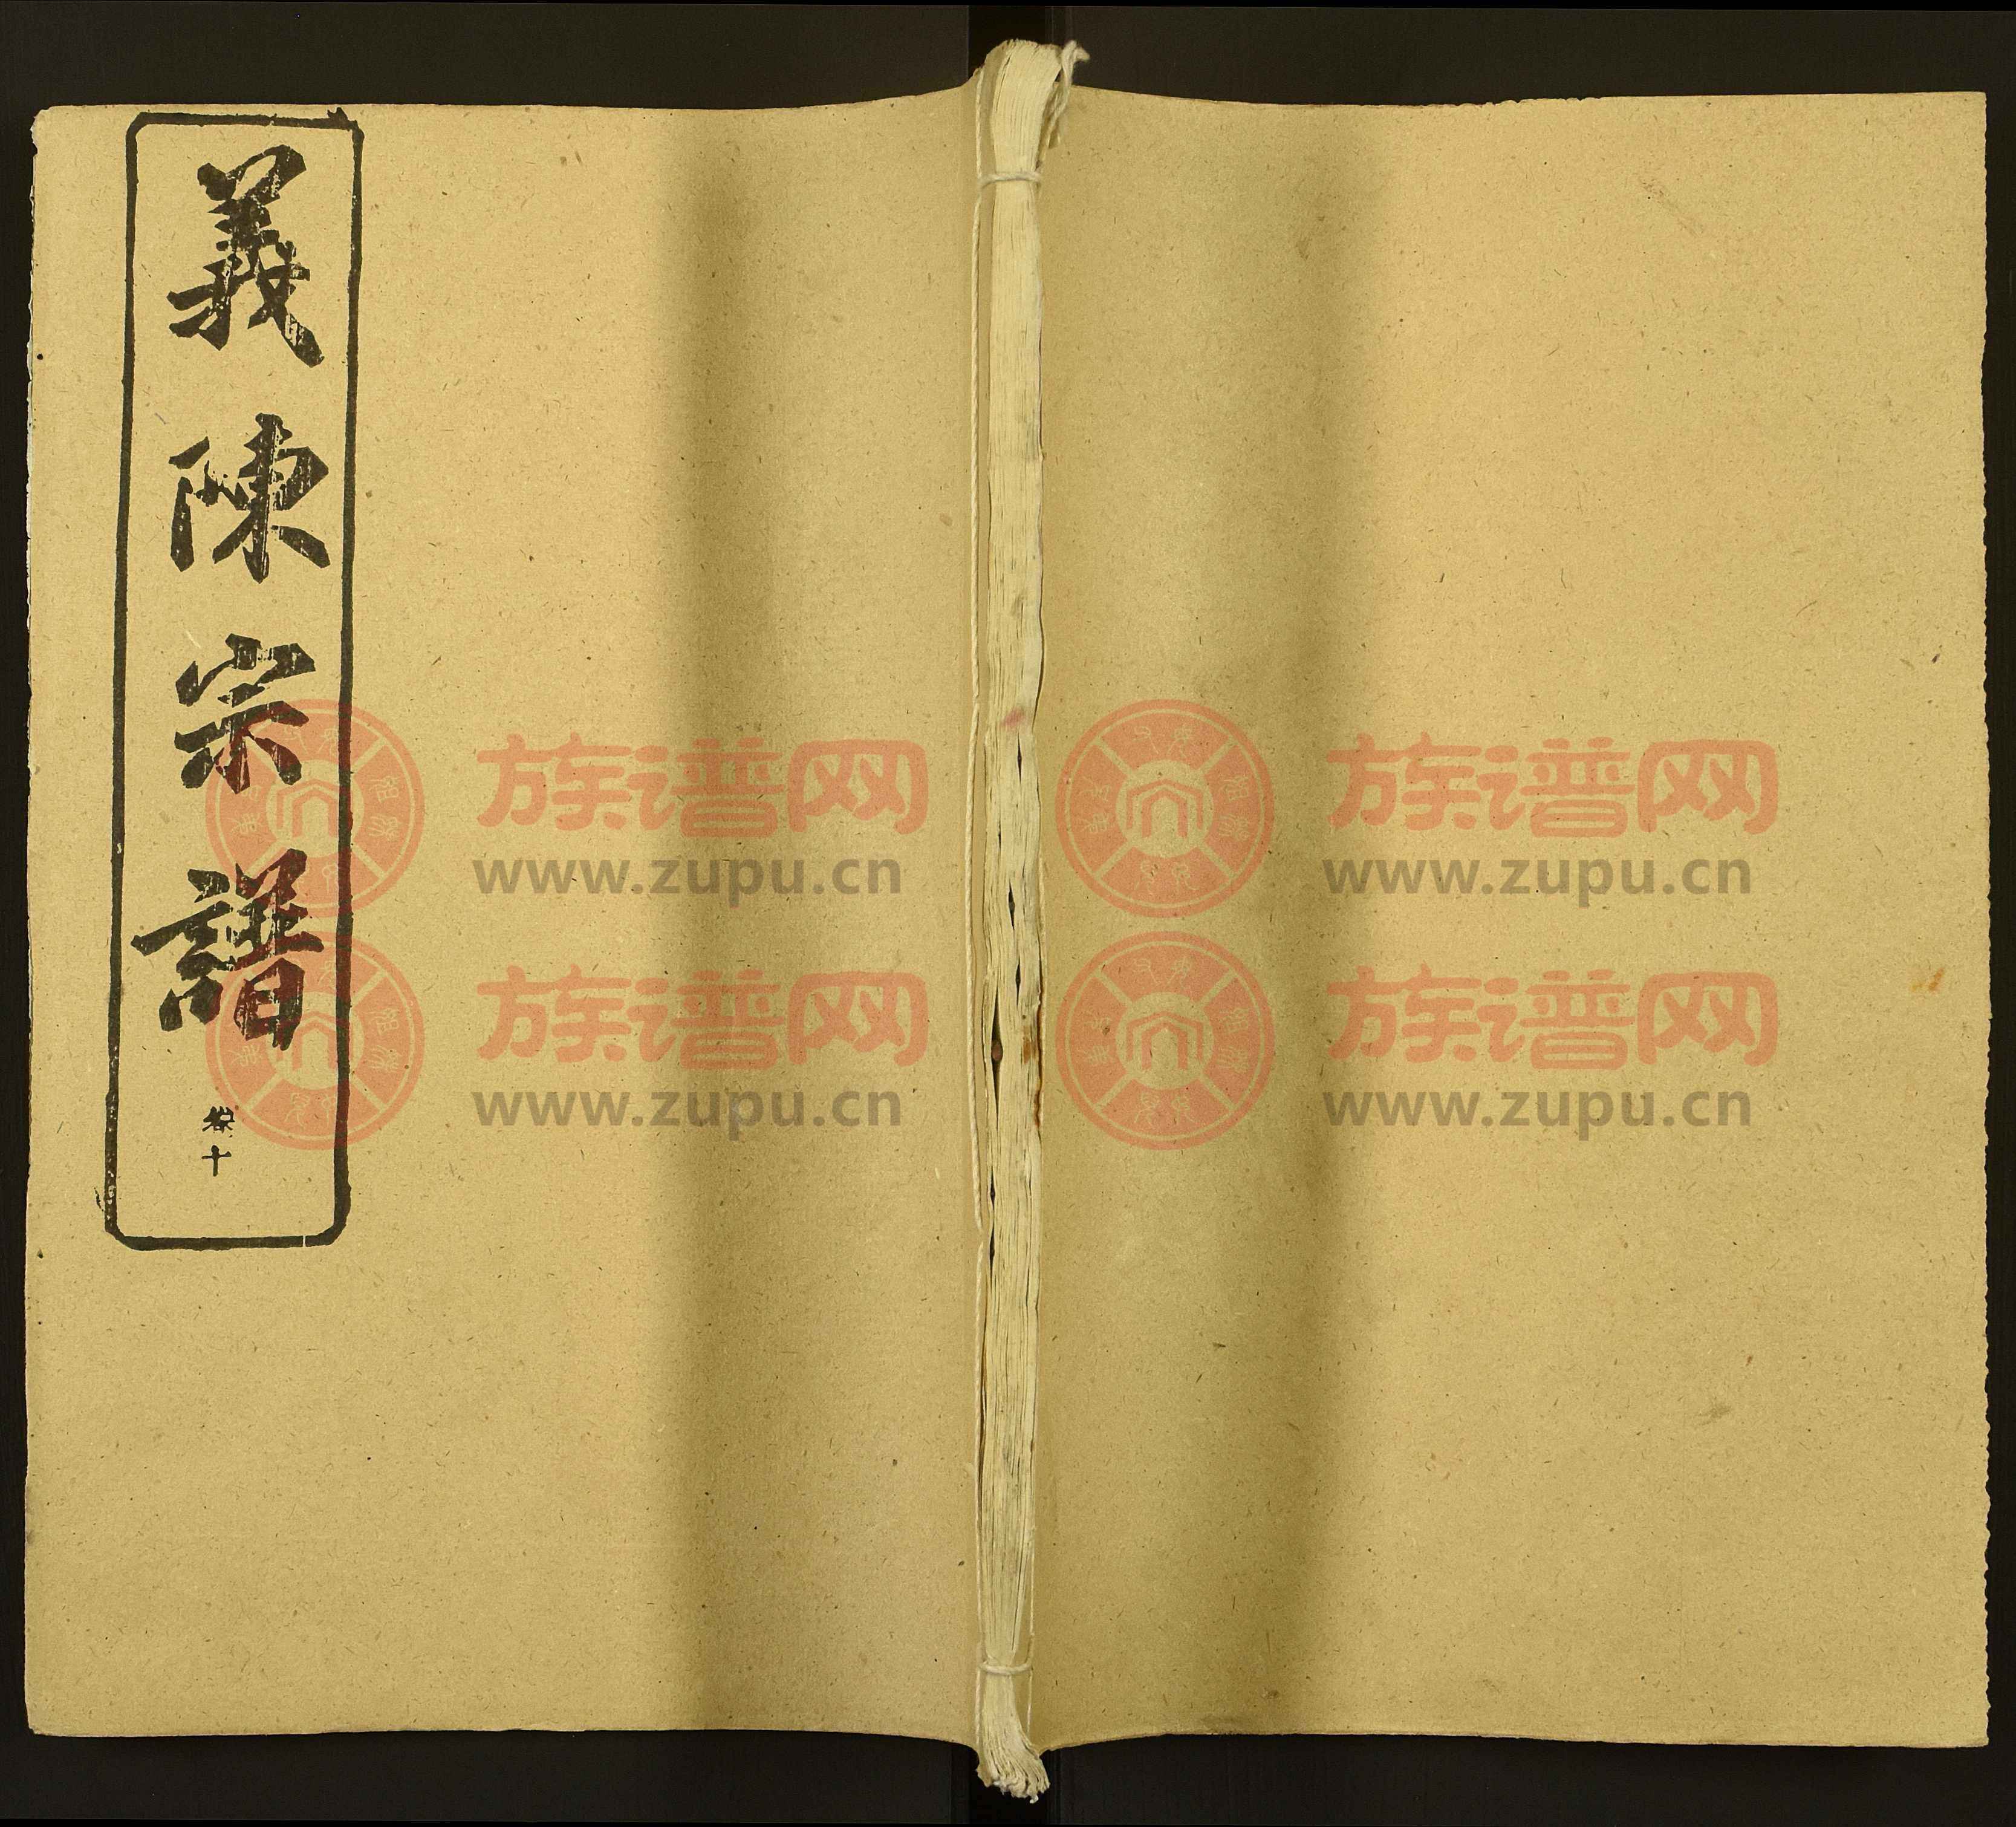 義陳宗譜
卷十
族谱网
www.zupu.cn
族谱网
www.zupu.cn
族谱网
www.zupu.cn
族谱网
www.zupu.cn